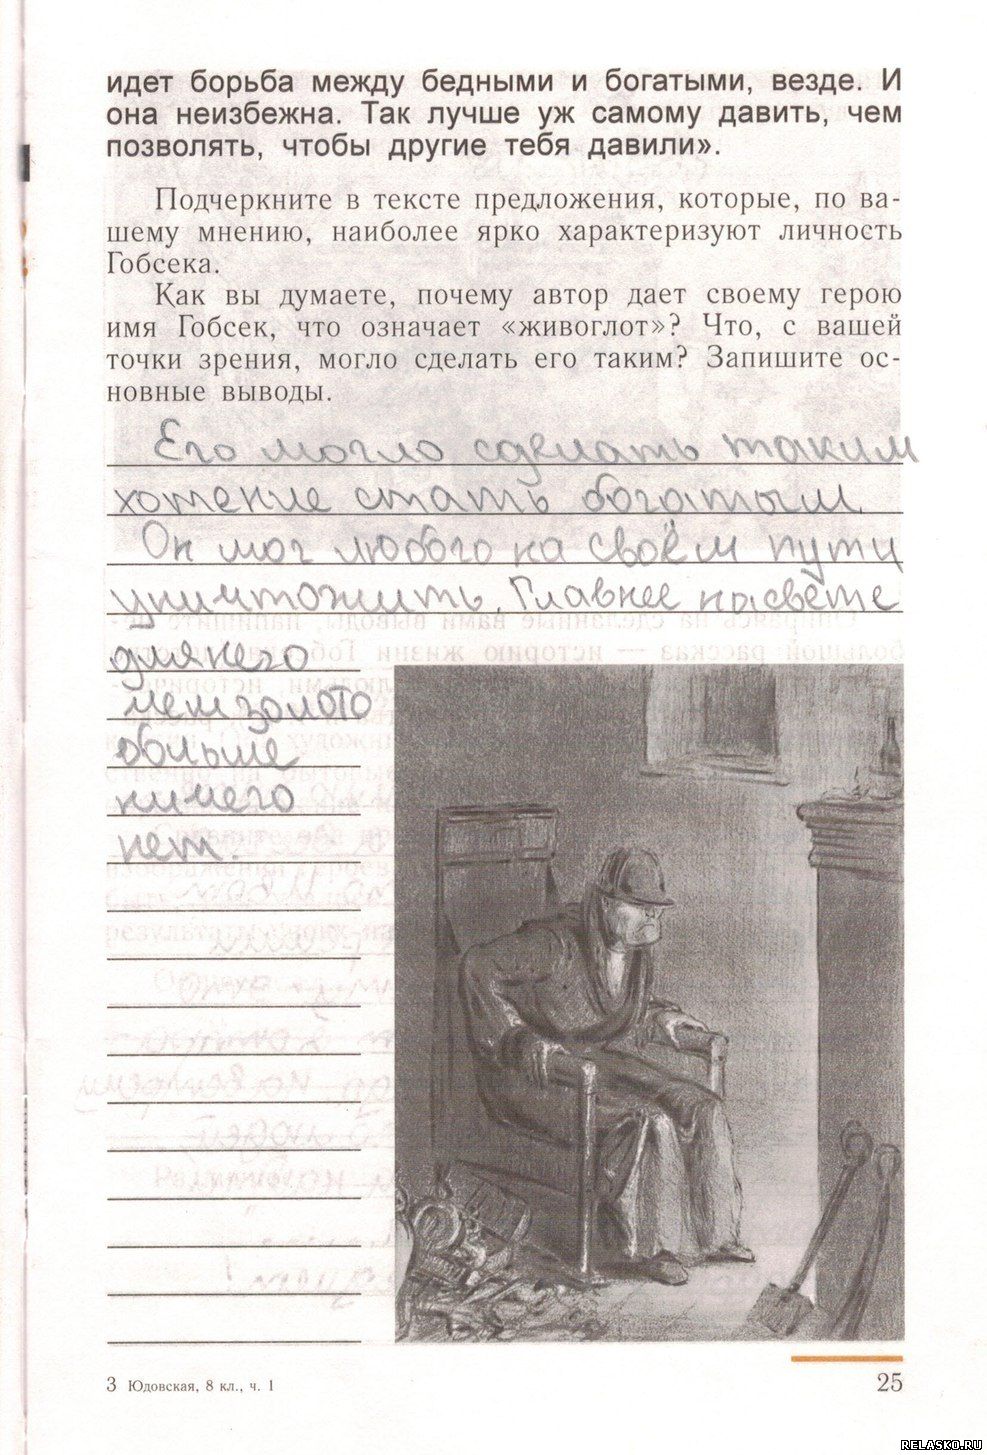 идет борьба между бедными и богатыми, везде. И
она неизбежна. Так лучше уж самому давить, чем
позволять, чтобы другие тебя давили».
Подчеркните в тексте предложения, которые, по ва-
шему мнению, наиболее ярко характеризуют личность
Гобсека.
Как вы думаете, почему автор дает своему герою
имя Гобсек, что означает «живоглот»? Что, с вашей
точки зрения, могло сделать его таким? Запишите ос-
новные выводы.
Его могло сделать таким
хотение стать богатым
Он мог любого на своём пути
уничтожить. Главнее на свете
для него
чем золото
больше
ничего
нет.
3 Юдовская, 8 кл., ч. 1
25
RELASKO.RU